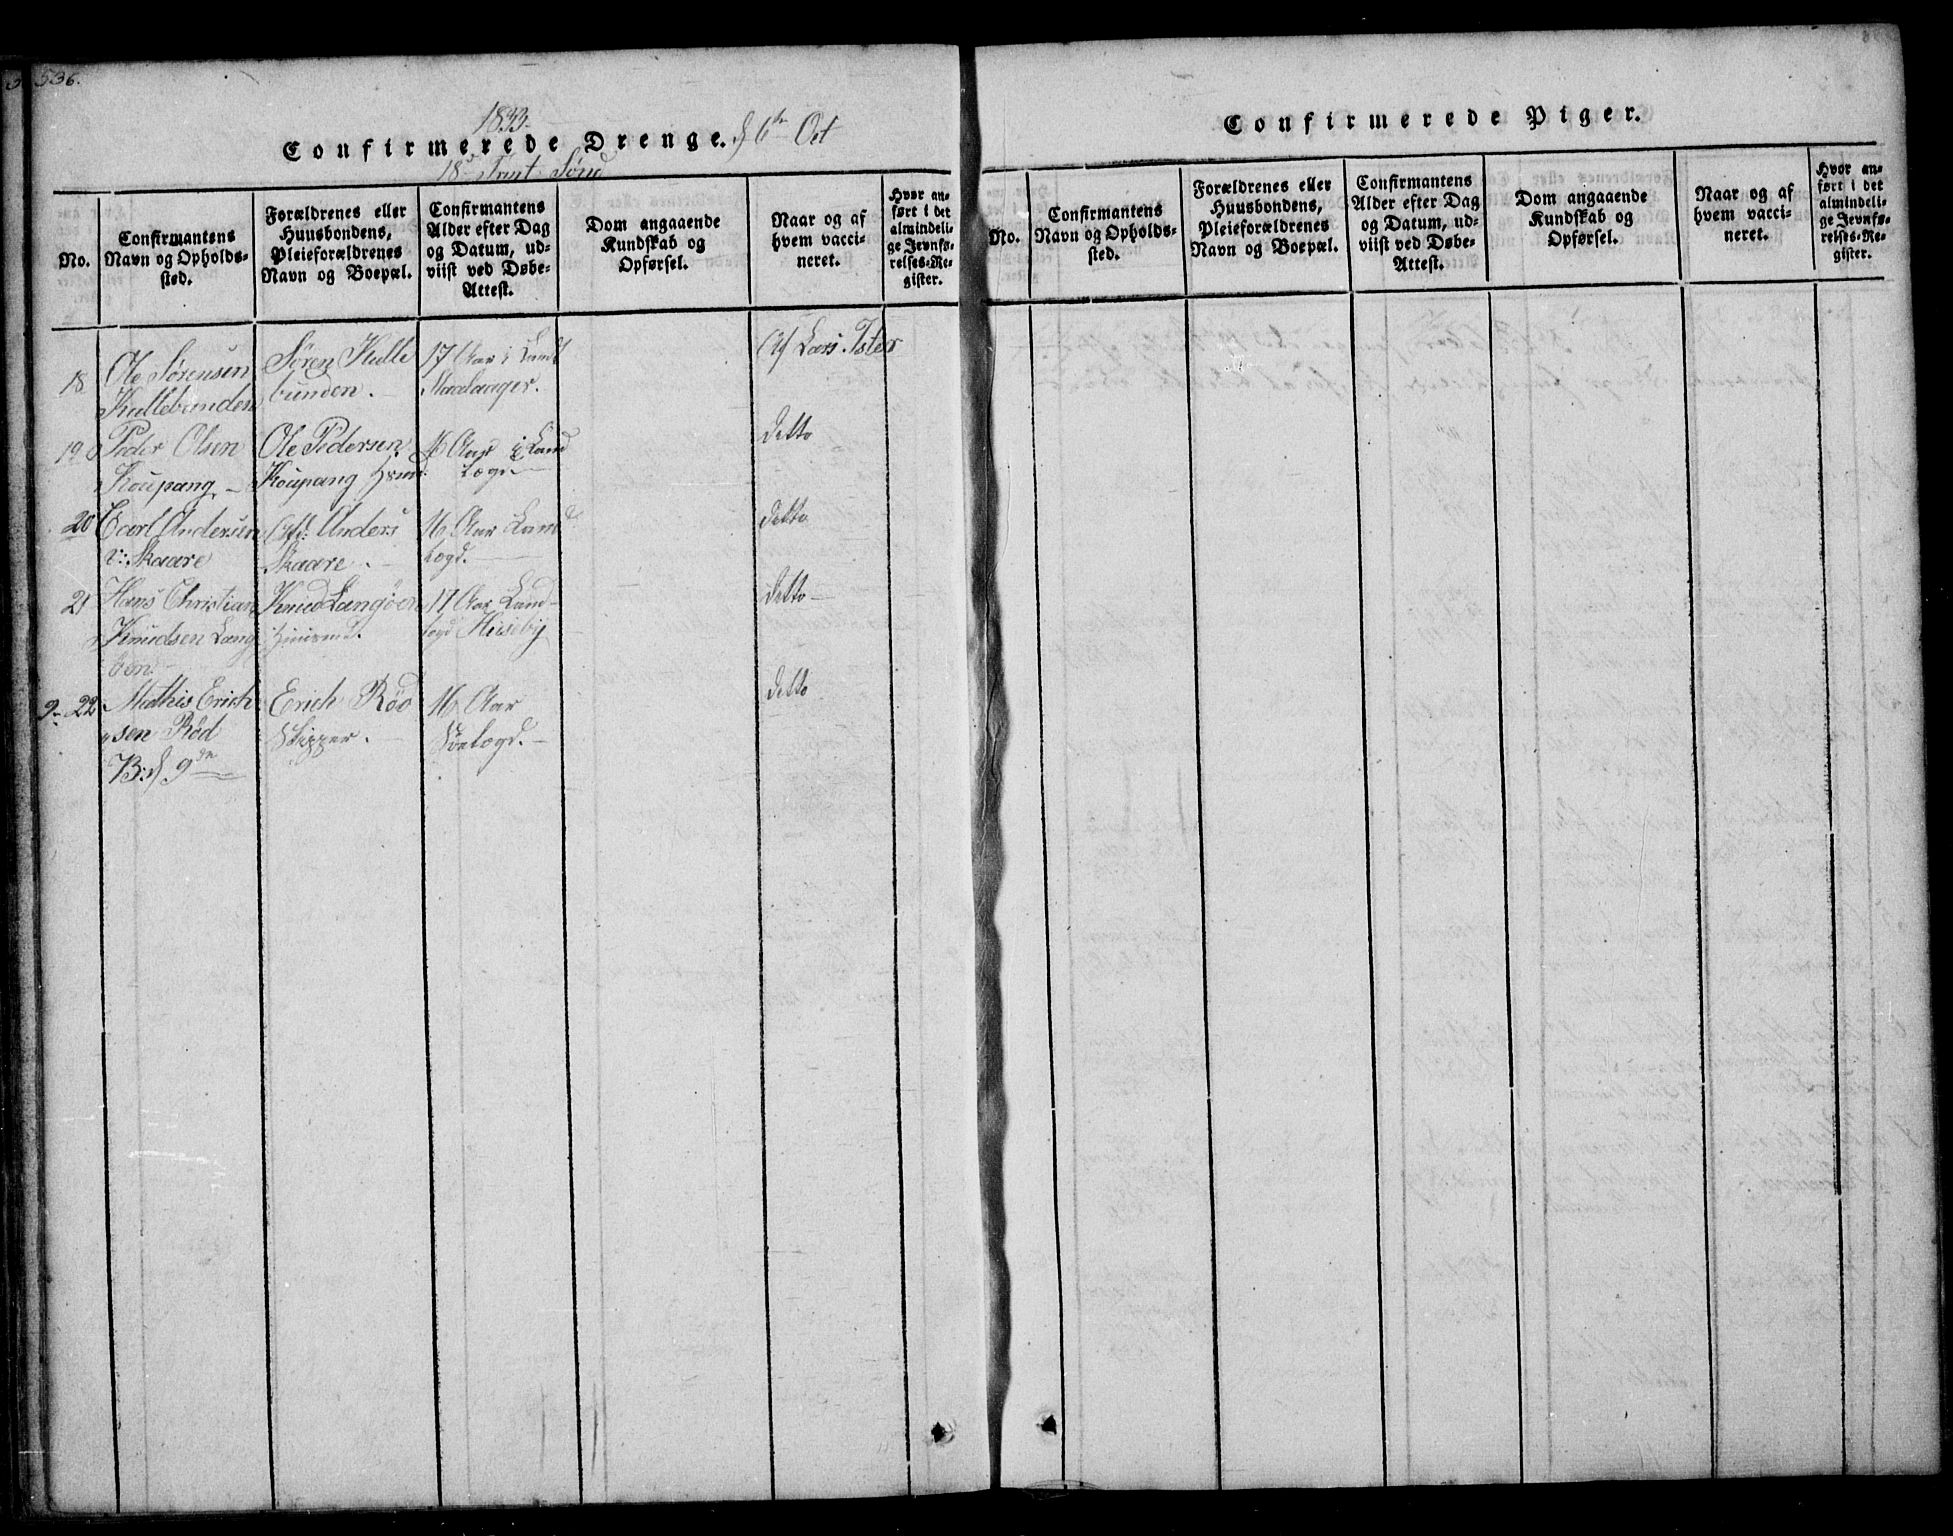 536.
1833.
Confirmerede Drenge. d. 6te Oct
18d Trint Sønd
No.
Confirmantens
Navn og Opholds-
sted.
Forældrenes eller
Huusbondens,
Pleieforældrenes
Navn og Boepæl.
Confirmantens
Alder efter Dag
og Datum, ud-
viist ved Døbe-
Attest.
Dom angaaende
Kundskab og
Opførsel.
Naar og af
hvem vacci-
neret.
Hvor an-
ført i det
almindeli-
ge Jevnfø-
relses-Re-
gister.
18
Ole Sørensen
Kullebunden
Søren Kulle
bunden.
17 Aar i Land
Af Lars Ister
19
Peder Olsen
Koupang
Ole Pedersen
Koupang
16 Aar i Land
Lægd
detto
20
Carl Andersen
v: Skaare
Anders
Skaare.
16 Aar Land
Lægd.
detto
21
Hans Christian
Knudsen Lang
öen
Knud Langöen
Huusmd.
17 Aar Land-
lægd Huseby
detto
22
Mathis Erich
sen Röd
B: d 9de
Erich Röd
Skipper.
16 Aar
Søelægd.
detto
Confirmerede Piger.
No.
Confirmantens
Navn og Opholds-
sted.
Forældrenes eller
Huusbondens,
Pleieforældrenes
Navn og Boepæl.
Confirmantens
Alder efter Dag
og Datum, ud-
viist ved Døbe-
Attest.
Dom angaaende
Kundskab og
Opførsel.
Naar og af
hvem vacci-
neret.
Hvor an-
ført i det
almindeli-
ge Jevnfø-
relses-Re-
gister.